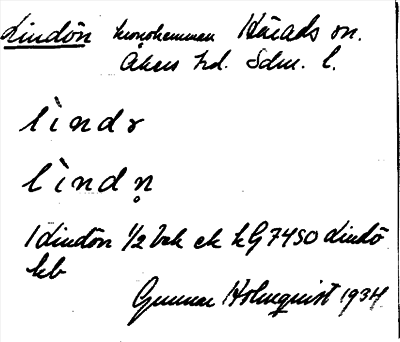 Lindön kronohemman Härads sn.
Åkers hd. Sdm. l.
lìndr
lìndn̥
1 Lindön 1/2 bek ek kG 7450 Lindö
kb
Gunnar Holmquist 1934